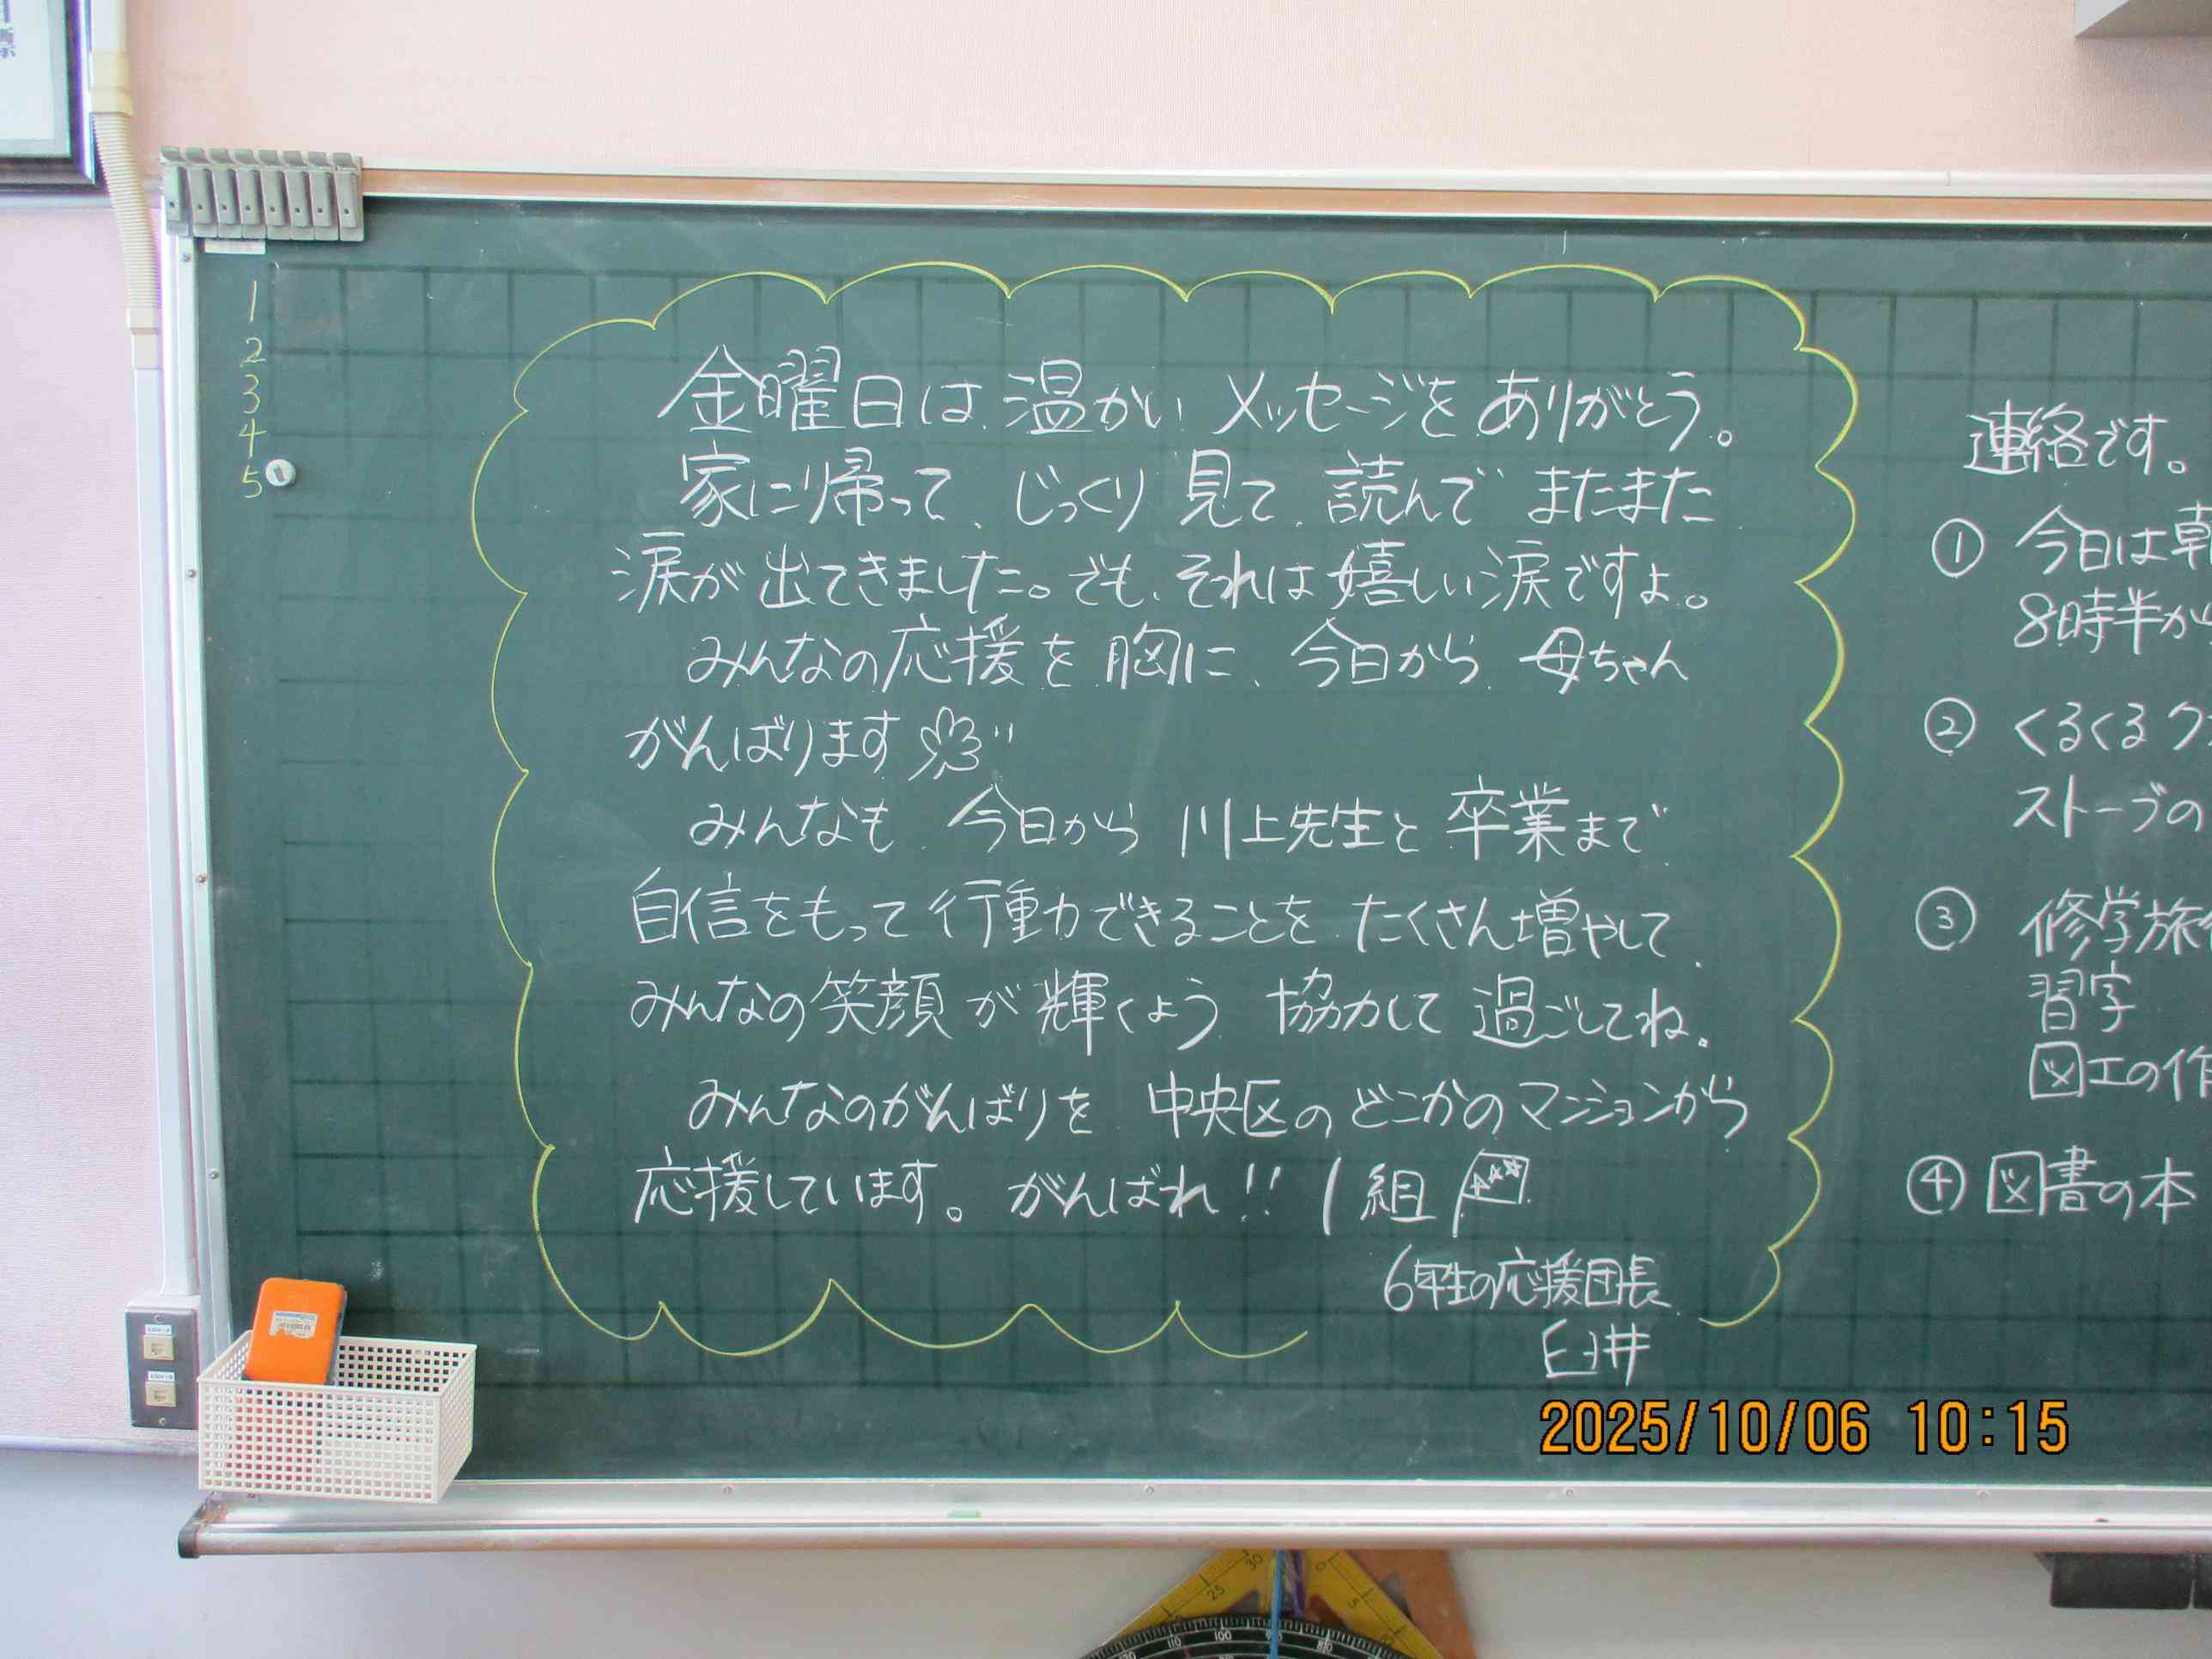 1
2
3
4
5
金曜日は、温かいメッセージをありがとう。
家に帰って、じっくり見て、読んでまたまた
涙が出てきました。でも、それは嬉しい涙ですよ。
みんなの応援を胸に、今日から、母ちゃん
がんばります
みんなも、今日から川上先生と卒業まで、
自信をもって行動できることを、たくさん増やして、
みんなの笑顔が輝くよう、協力して過ごしてね。
みんなのがんばりを中央区のどこかのマンションから
応援しています。がんばれ!! 1組
6年生の応援団長
臼井
連絡です。
① 今日は朝
8時半から
② くるくる
ストーブの
③ 修学旅行
習字
図工の作
④ 図書の本
2025/10/06 10:15
30
25
110
100
90
80
0
5